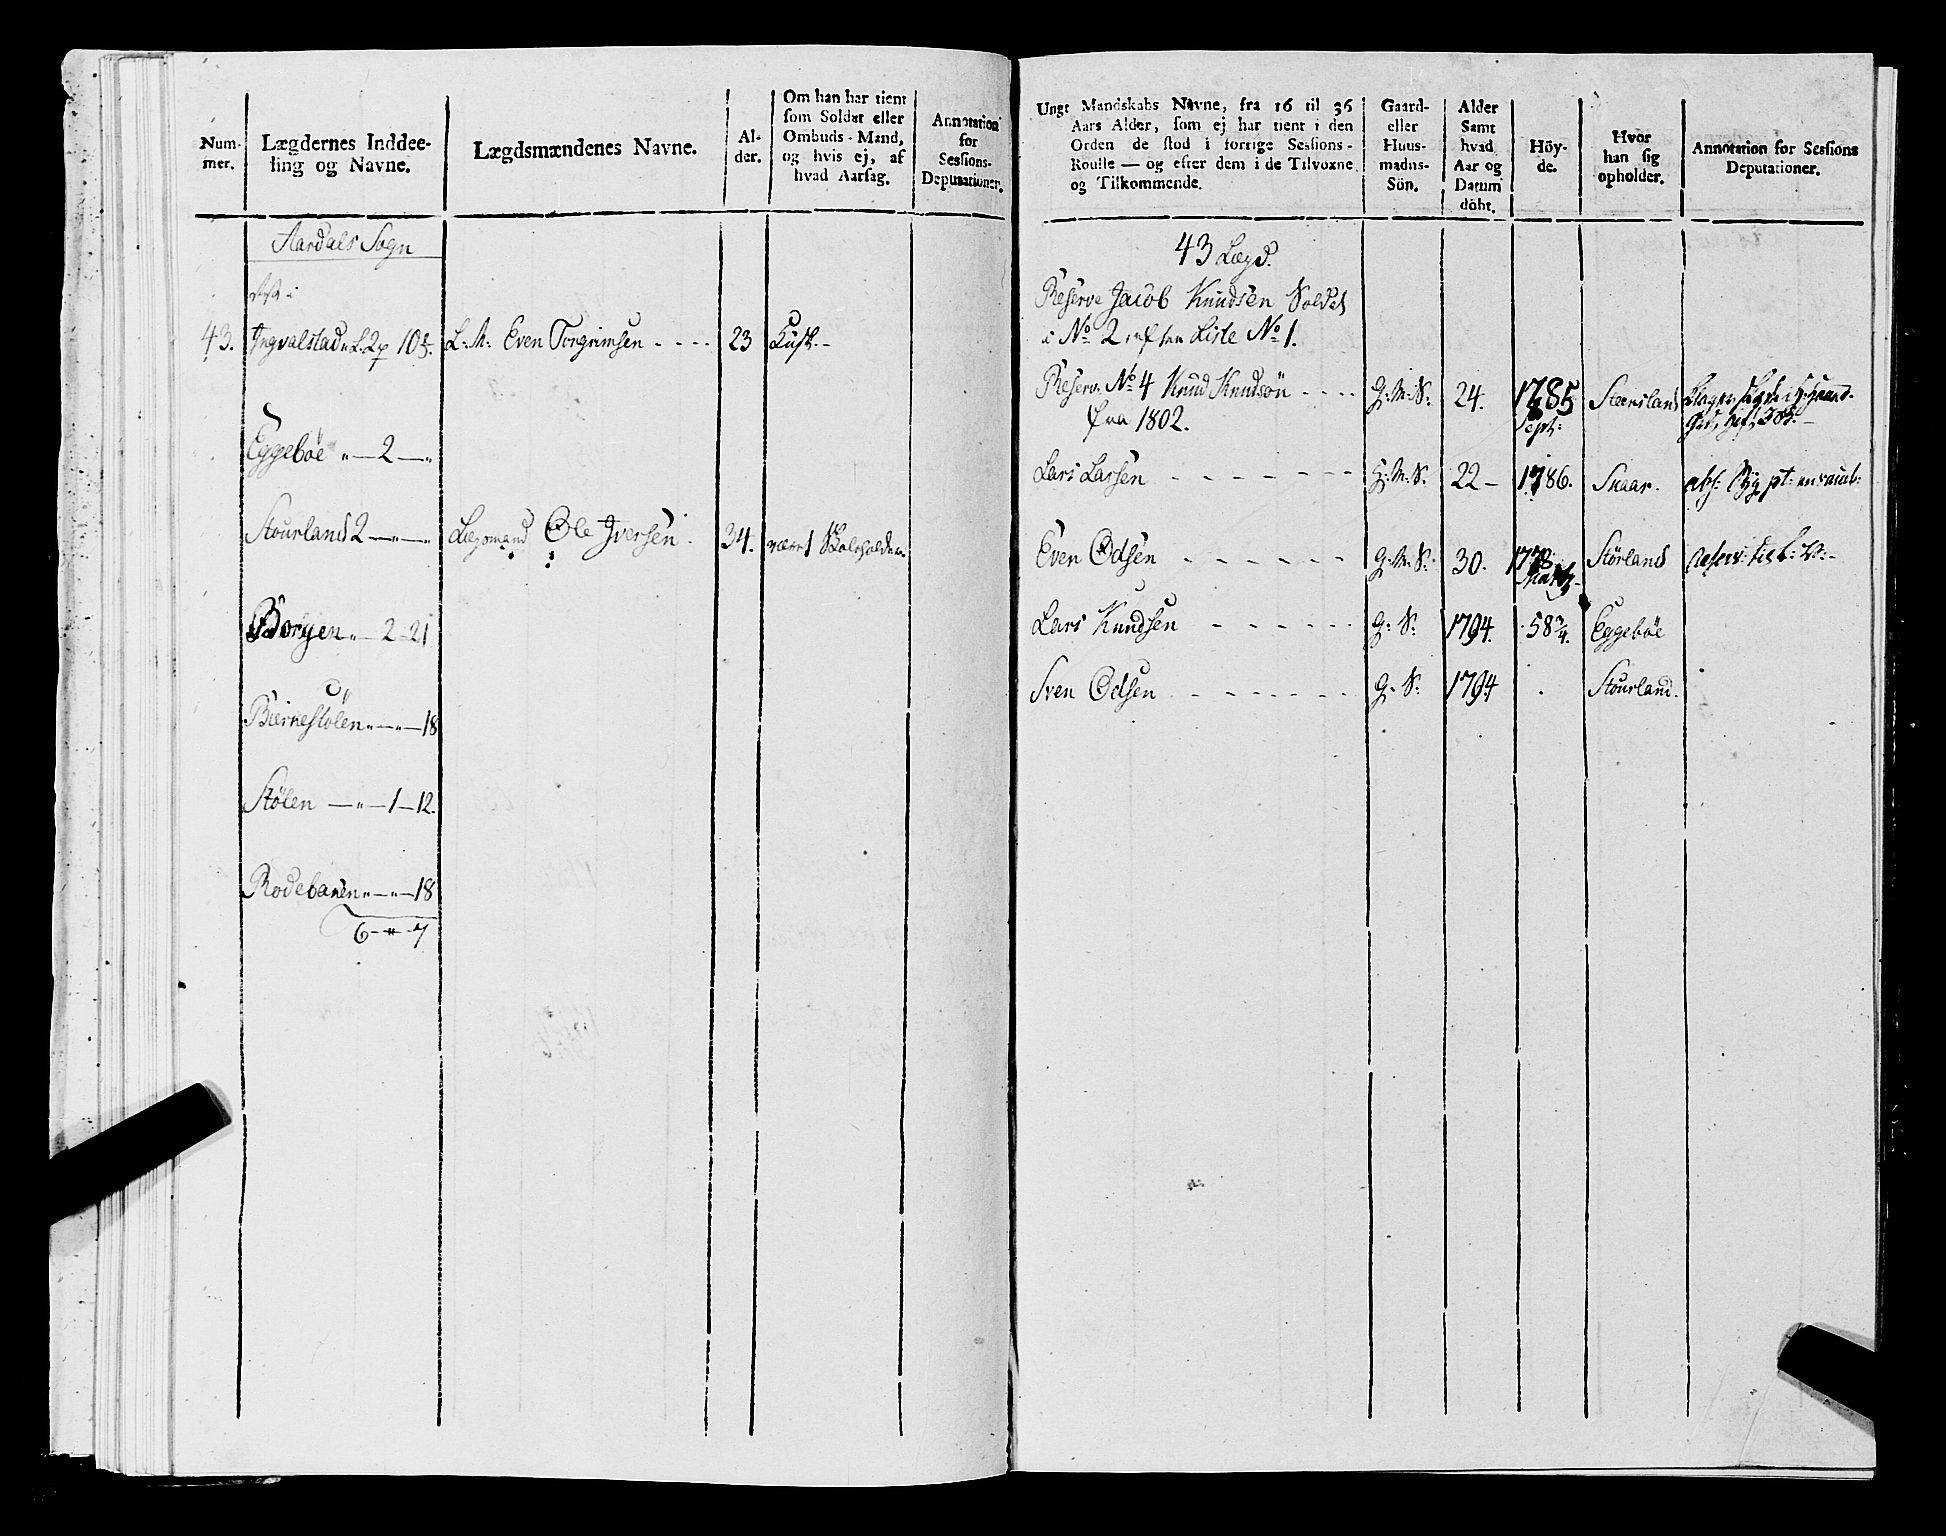 Num-
mer.
Lægdernes Inddee-
ling og Navne.
Lægdsmændenes Navne.
Al-
der.
Om han har tient
som Soldat eller
Ombuds-Mand,
og hvis ej, af
hvad Aarsag.
Annotation
for
Sessions-
Deputationer.
Aardals Sogn
43. Ingvalstad 2 10
L: M: Even Torgrimsen 23
Eggebøe " — 2 — "
Stourland 2 — " — "
Lægsmand Ole Iversen. 34. været Skoleholder
Borgen " — 2 — 21
Biernestølen " — " — 18
Stølen — " — 1 — 12.
Rodebaken " — " — 18
6 — " — 7
Ungt Mandskabs Navne, fra 16 til 36
Aars Alder, som ej har tient i den
Orden de stod i forrige Sessions-
Roulle — og efter dem i de Tilvoxne
og Tilkommende.
Gaard-
eller
Huus-
mands-
Sön.
Alder
Samt
hvad
Aar og
Datum
döbt.
Höy-
de.
Hvor
han sig
opholder.
Annotation for Sessions
Deputationer.
43 Lægd.
Reserve Jacob Knudsen Soldat
i No 2 efter Liste No 1.
Reserv. No 4 Knud Knudsön G: M: S: 24. 1785
fra 1802. Sept:
Lars Larsen H: M: S: 22 — 1786.
Even Odsen G: M: S: 30. 1778 Störland
Lars Knudsen G: S: 1794. 58 3/4. Eggebøe
Sven Odsen G: S: 1794 Stourland.